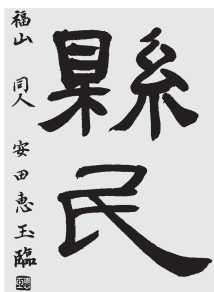 縣民
福山 同人 安田恵玉臨